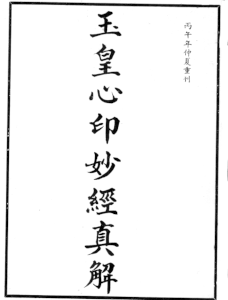 丙午年仲夏重刊
玉皇心印妙經真解